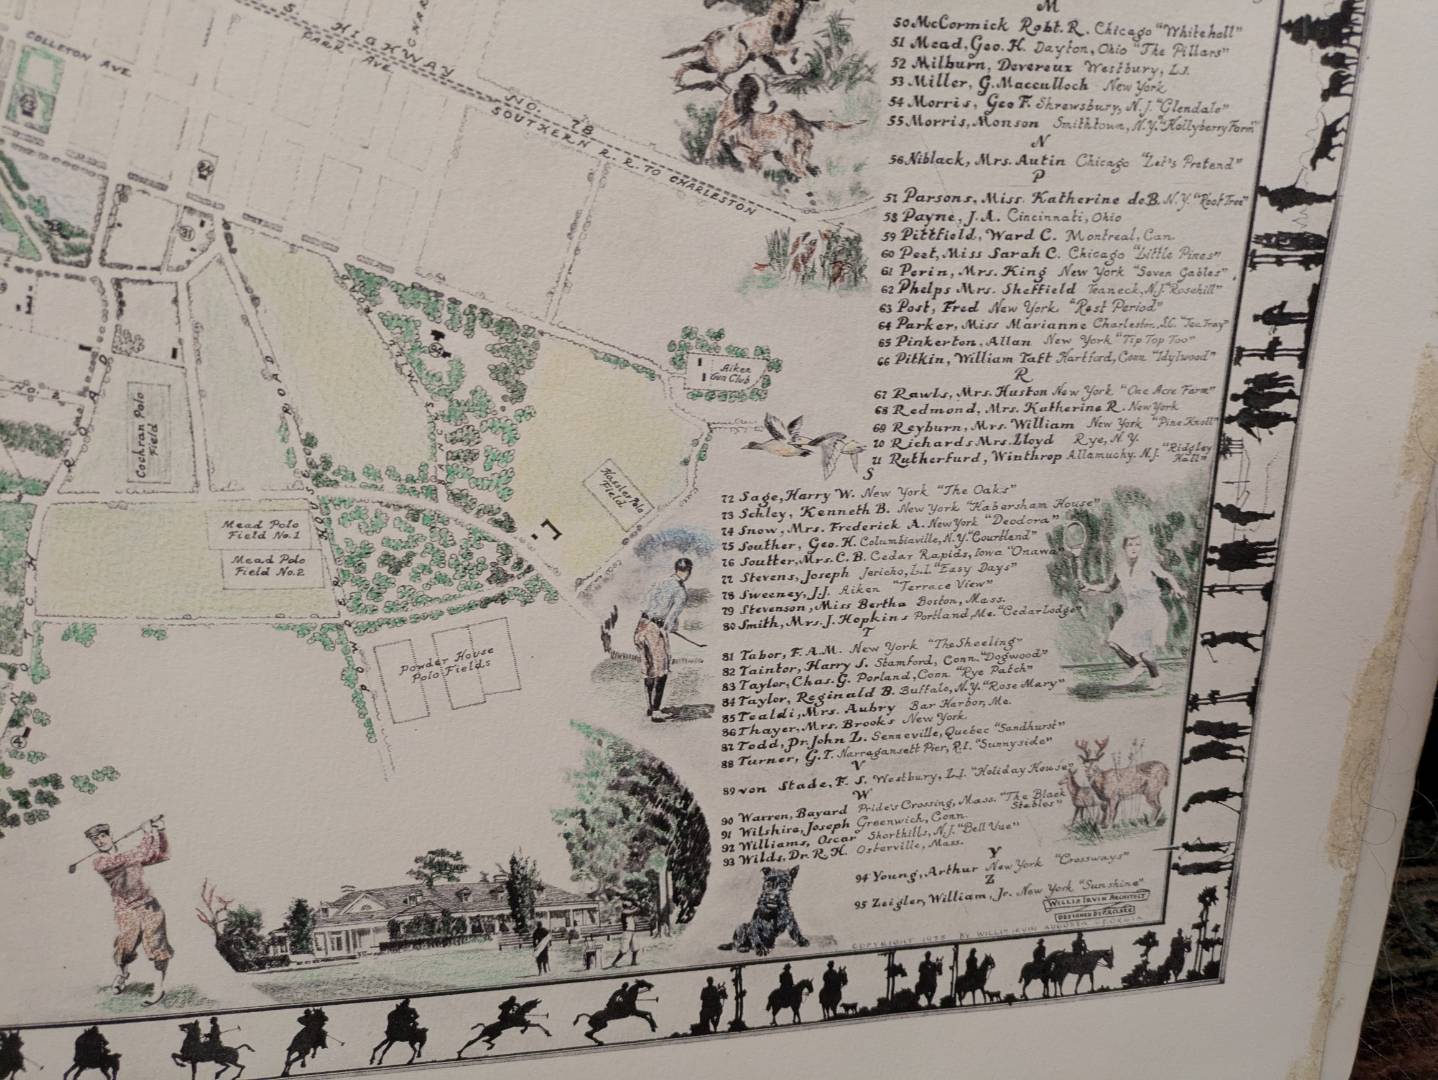 COLLETON AVE.
S. HIGHWAY NO. 78
PARK AVE.
SOUTHERN R.R. TO CHARLESTON
24
31
Aiken Gun Club
Cochran Polo Field
ROAD
Hassler Polo Field
Mead Polo Field No. 1
Mead Polo Field No. 2
Powder House Polo Fields
M
50 McCormick Robt. R. Chicago "Whitehall"
51 Mead, Geo. H. Dayton, Ohio "The Pillars"
52 Milburn, Devereux Westbury, L.I.
53 Miller, G. Macculloch New York
54 Morris, Geo F. Shrewsbury, N.J. "Glendale"
55 Morris, Monson Smithtown, N.Y. "Hollyberry Farm"
N
56 Niblack, Mrs. Autin Chicago "Let's Pretend"
P
57 Parsons, Miss. Katherine de B. N.Y. "Root Tree"
58 Payne, J.A. Cincinnati, Ohio
59 Pittfield, Ward C. Montreal, Can.
60 Peet, Miss Sarah C. Chicago "Little Pines"
61 Perin, Mrs. King New York "Seven Gables"
62 Phelps Mrs. Sheffield Teaneck, N.J. "Rosehill"
63 Post, Fred New York "Rest Period"
64 Parker, Miss Marianne Charleston, S.C. "Tea Tray"
65 Pinkerton, Allan New York "Tip Top Too"
66 Pitkin, William Taft Hartford, Conn "Idylwood"
R
67 Rawls, Mrs. Huston New York "One Acre Farm"
68 Redmond, Mrs. Katherine R. New York
69 Reyburn, Mrs. William New York "Pine Knoll"
70 Richards Mrs. Lloyd Rye, N.Y.
71 Rutherfurd, Winthrop Allamuchy. N.J. "Ridgley Hall"
S
72 Sage, Harry W. New York "The Oaks"
73 Schley, Kenneth B. New York "Habersham House"
74 Snow, Mrs. Frederick A. New York "Deodora"
75 Souther, Geo. H. Columbiaville, N.Y. "Courtland"
76 Soutter, Mrs. C. B. Cedar Rapids, Iowa "Onawa"
77 Stevens, Joseph Jericho, L.I. "Easy Days"
78 Sweeney, J.J. Aiken "Terrace View"
79 Stevenson, Miss Bertha Boston, Mass.
80 Smith, Mrs. J. Hopkins Portland, Me. "Cedar Lodge"
T
81 Tabor, F.A.M. New York "The Sheeling"
82 Taintor, Harry S. Stamford, Conn. "Dogwood"
83 Taylor, Chas. G. Porland, Conn. "Rye Patch"
84 Taylor, Reginald B. Buffalo, N.Y. "Rose Mary"
85 Tealdi, Mrs. Aubry Bar Harbor, Me.
86 Thayer, Mrs. Brooks New York
87 Todd, Dr. John L. Senneville, Quebec "Sandhurst"
88 Turner, G.T. Narragansett Pier, R.I. "Sunnyside"
V
89 von Stade, F. S. Westbury, L.I. "Holiday House"
W
90 Warren, Bayard Pride's Crossing, Mass. "The Black Stables"
91 Wilshire, Joseph Greenwich, Conn.
92 Williams, Oscar Shorthills, N.J. "Bell Vue"
93 Wilds, Dr. R. H. Osterville, Mass.
Y
94 Young, Arthur New York "Crossways"
Z
95 Zeigler, William, Jr. New York "Sunshine"
WILLIS IRVIN ARCHITECT
COPYRIGHT BY WILLIS IRVIN AUGUSTA GEORGIA